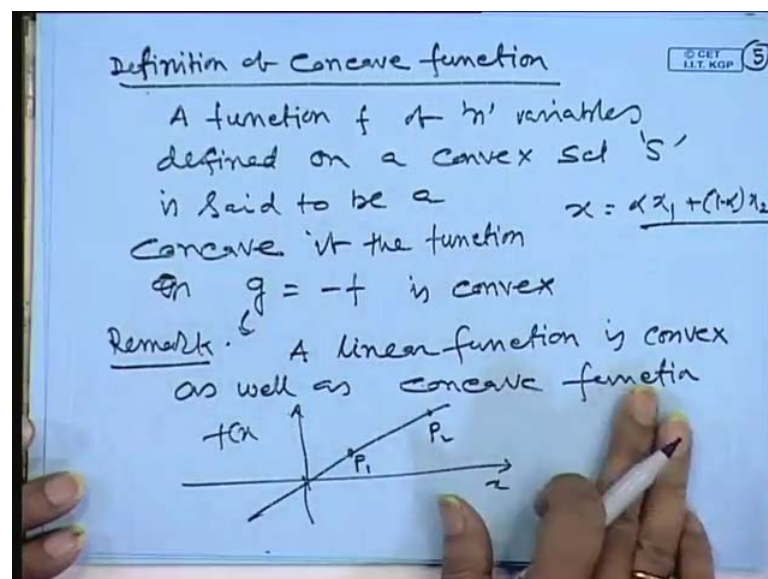 Definition of Concave function
© CET
I.I.T. KGP
5
A function f of 'n' variables
defined on a convex set 's'
is said to be a
x = αx₁ + (1-α)x₂
Concave if the function
g = -f is convex
Remark. A linear function is convex
as well as concave function
f(x
P₁
P₂
x